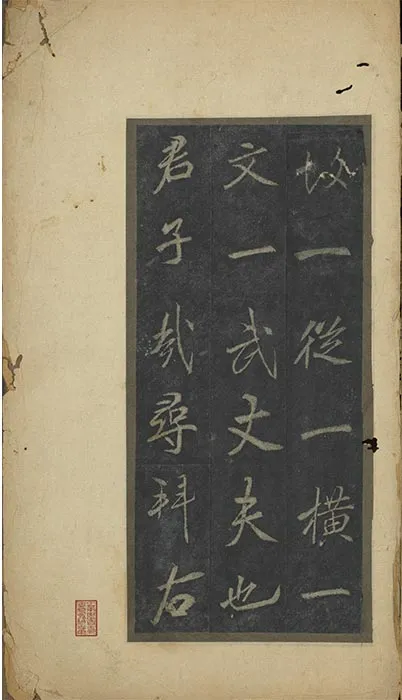 故一從一橫一
文一武丈夫也
君子哉尋拜右